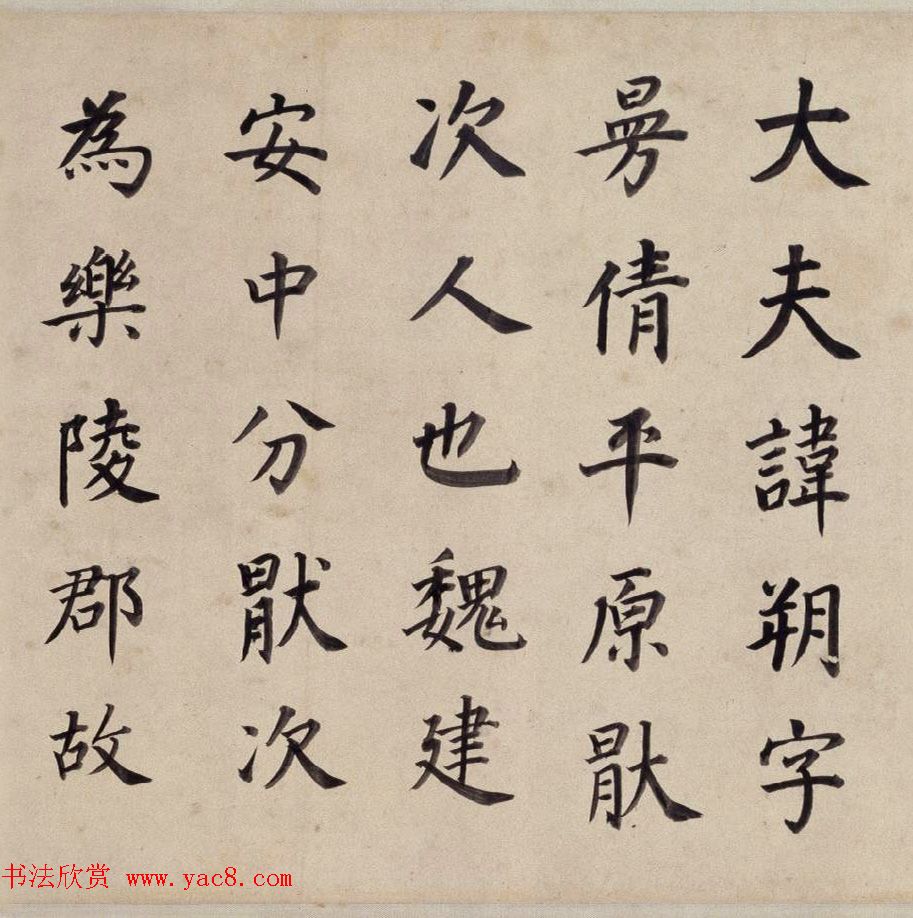 大夫諱朔字
曼倩平原猒
次人也魏建
安中分猒次
為樂陵郡故
书法欣赏 www.yac8.com